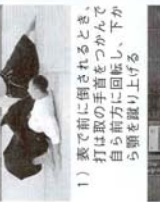 1）表で前に倒されるとき、
打は取の手首をつかんで
自ら前方に回転し、下か
ら顎を蹴り上げる